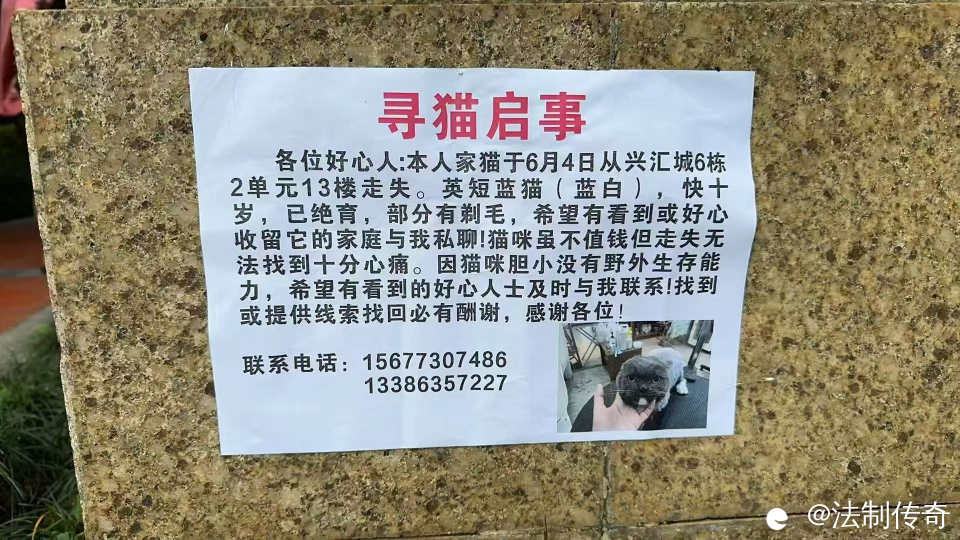 寻猫启事
各位好心人:本人家猫于6月4日从兴汇城6栋
2单元13楼走失。英短蓝猫（蓝白），快十
岁，已绝育，部分有剃毛，希望有看到或好心
收留它的家庭与我私聊!猫咪虽不值钱但走失无
法找到十分心痛。因猫咪胆小没有野外生存能
力，希望有看到的好心人士及时与我联系!找到
或提供线索找回必有酬谢，感谢各位!
联系电话：15677307486
13386357227
@法制传奇